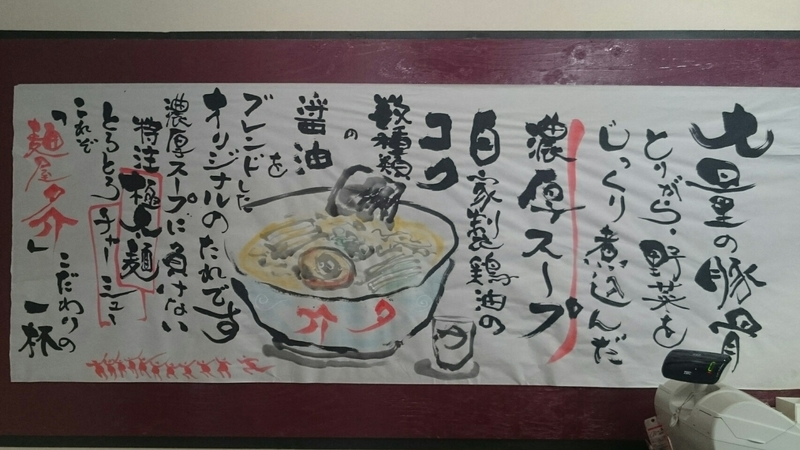 大量の豚骨
とりがら・野菜を
じっくり煮込んだ
濃厚スープ
自家製鶏油の
コク
数種類
の
醤油
を
ブレンドした
オリジナルのたれです
濃厚スープに負けない
特注極太麺
とろとろチャーシュー
これぞ
「麺屋介」
こだわりの
一杯